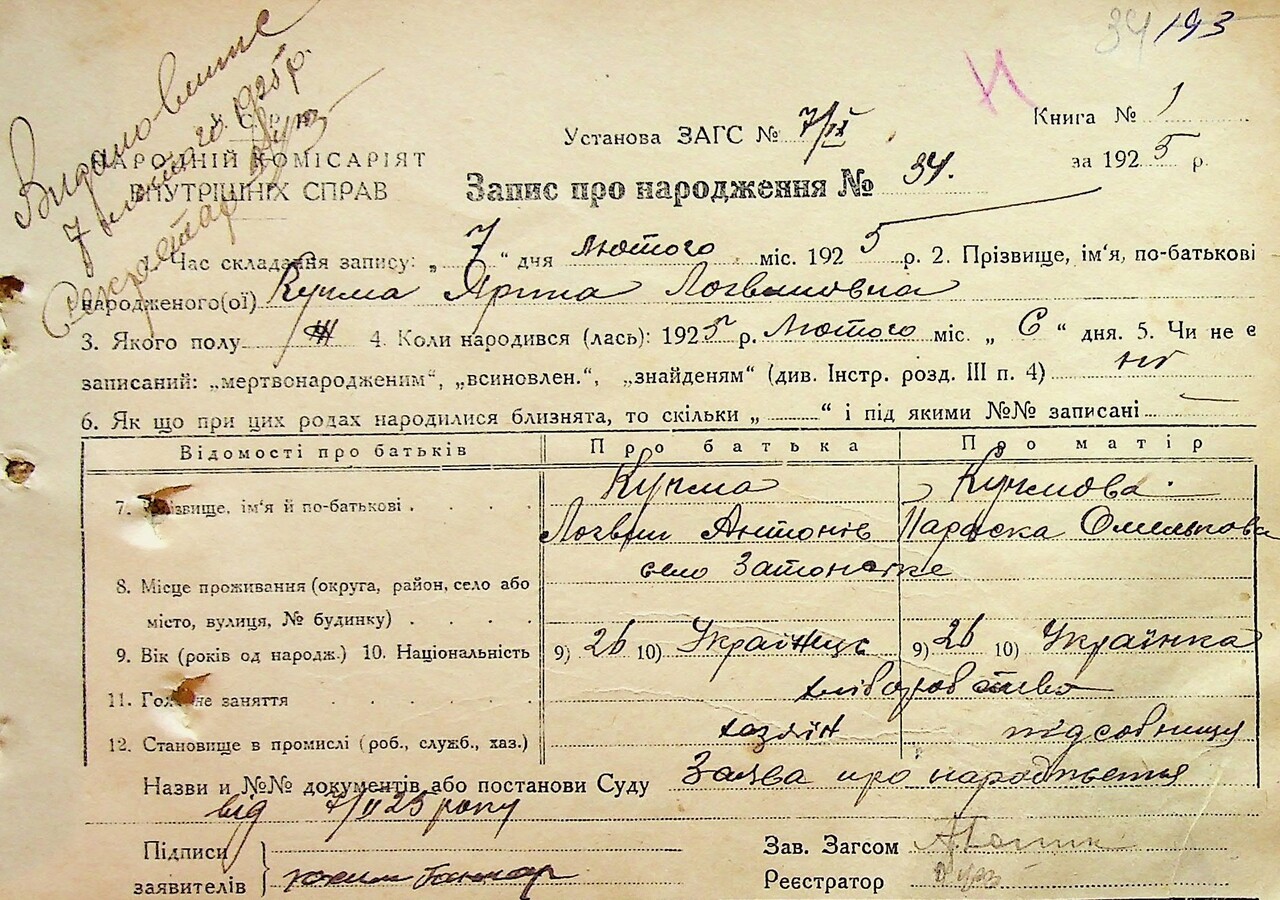 34 193
И
Видано виписс
7 лютого 1925 р.
Секретар
У.С.Р.Р.
НАРОДНІЙ КОМІСАРІЯТ
ВНУТРІШНІХ СПРАВ
Установа ЗАГС № 7/IX
Книга № 1
за 1925 р.
Запис про народження № 34.
Час складання запису: „ 7 “ дня лютого міс. 1925 р. 2. Прізвище, ім'я, по-батькові
народженого(ої) Кучма Ярина Логвиновна
3. Якого полу Ж 4. Коли народився (лась): 1925 р. Лютого міс. „ 6 “ дня. 5. Чи не є
записаний: „мертвонародженим“, „всиновлен.“, „знайденям“ (див. Інстр. розд. III п. 4) ні
6. Як що при цих родах народилися близнята, то скільки „ “ і під якими №№ записані
Відомості про батьків Про батька Про матір
7. Прізвище, ім'я й по-батькові Кучма Кучмова
Логвин Антонів Параска Омелькова
8. Місце проживання (округа, район, село або село Затонське
місто, вулиця, № будинку)
9. Вік (років од народж.) 10. Національність 9) 26 10) Українць 9) 26 10) Українка
11. Головне заняття хліборобство
12. Становище в промислі (роб., служб., хаз.) хозяїн підсобниця
Назви и №№ документів або постанови Суду Заява про народження
від 7/II 25 року
Підписи
заявителів
Зав. Загсом
Реєстратор